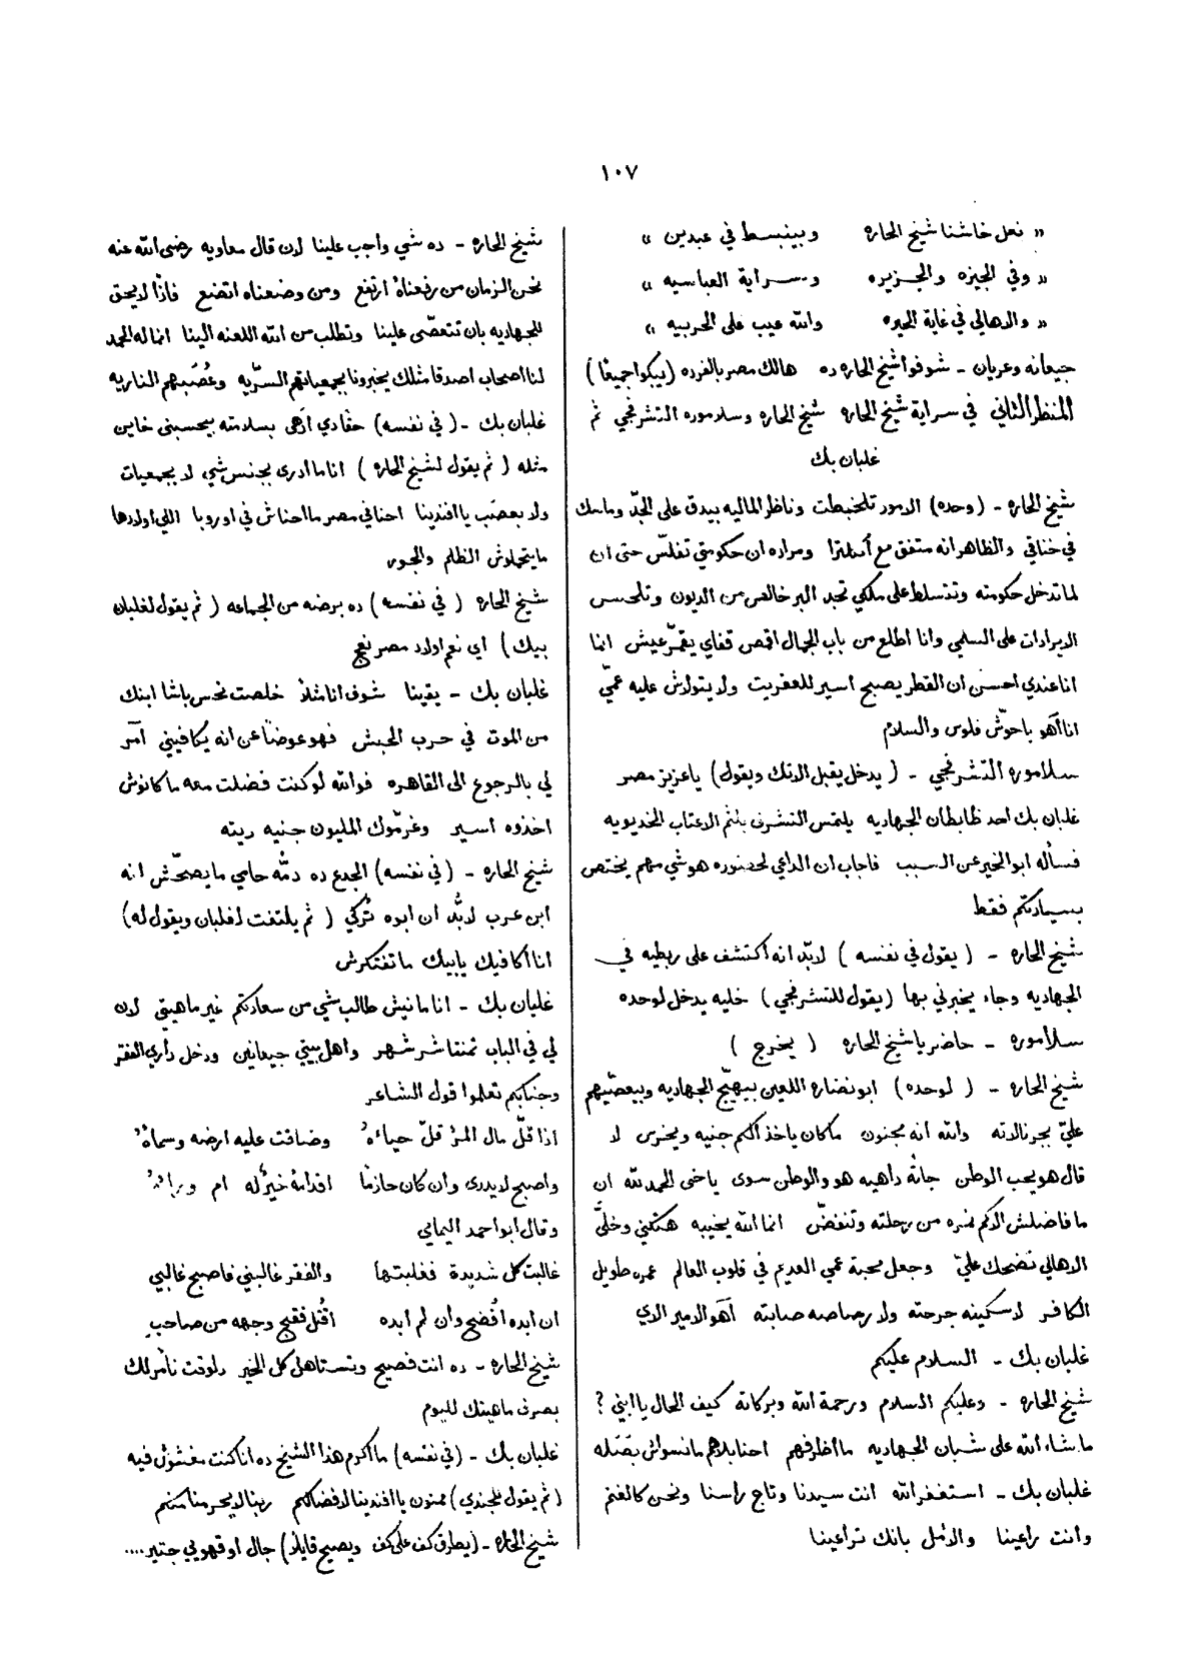 ١٠٧
« نعل خاشنا شيخ الحاره وبينبسط في عبدين »
« وفي الجيزه والجزيره وسراية العباسيه »
« والاهالي في غاية الحيره والله عيب على الحربيه »
جيعانه وعريان - شوفوا شيخ الحاره ده هالك مصر بالفرده (يبكوا جميعًا)
المنظر الثاني في سراية شيخ الحاره شيخ الحاره وسلاموره التشرفجي ثم
غلبان بك
شيخ الحاره - (وحده) الامور تلخبطت وناظر الماليه بيدق على الجدّ وماسك
في خناقي والظاهر انه متفق مع أنكلترا ومراده ان حكومتي تفلّس حتى ان
لما تدخل حكومته وتتسلط على ملكي تجد البر خالص من الديون وتلحس
الايرادات على السلمي وانا اطلع من باب الجمال اقمص قفاي يقمّر عيش انما
انا عندي احسن ان القطر يصبح اسير للعفريت ولا يتولاش عليه عمّي
انا آهو باحوّش فلوس والسلام
سلاموره التشرفجي - (يدخل يقبل الاتك ويقول) يا عزيز مصر
غلبان بك احد ظابطان الجهاديه يلتمس التشرف بلثم الاعتاب الخديويه
فسأله ابو الخير عن السبب فاجاب ان الداعي لحضوره هو شي مهم يختص
بسيادتكم فقط
شيخ الحاره - (يقول في نفسه) لابدّ انه أكتشف على ربطيه في
الجهاديه وجاء يخبرني بها (يقول للتشرفجي) خليه يدخل لوحده
سلاموره - حاضر يا شيخ الحاره (يخرج)
شيخ الحاره - (لوحده) ابو نضاره اللعين بيهيّج الجهاديه وبيعصّيهم
عليّ بجرنالاته والله انه مجنون ماكان ياخذ الكم جنيه ويخرس لا
قال هو يحب الوطن جاته داهيه هو والوطن سوى يا خى الحمد لله ان
ما فاضلش الا كم نمره من رحلته وتنفضّ انما الله يخيبه هتكني وخلّى
الاهالي تضحك عليّ وجعل محبة عمي العديم في قلوب العالم عمره طويل
الكافر لا سكينه جرحته ولا رصاصه صابته آهو الامير الاي
غلبان بك - السلام عليكم
شيخ الحاره - وعليكم السلام ورحمة الله وبركاته كيف الحال يا ابني ?
ما شاء الله على شبان الجهاديه ما أظرفهم احنا بلاهم ما نسواش بَصَله
غلبان بك - استغفر الله انت سيدنا وتاج راسنا ونحن كالغنم
وانت راعينا والامل بانك تراعينا
شيخ الحاره - ده شي واجب علينا لان قال معاويه رضى الله عنه
نحن الزمان من رفعناهُ ارتفع ومن وضعناه اتضع فاذًا لا يحق
للجهاديه بان تتعصّى علينا وتطلب من الله اللعنه الينا انما له الحمد
لنا أصحاب اصدقا مثلك يخبرونا بجمعياتهم السرّيه وعُصَبهم الناريه
غلبان بك - (في نفسه) حقادي أرْهى بسلامته بيحسبنى خاين
مثله (ثم يقول لشيخ الحاره) انا ما أدرى بجنس شي لا بجمعيات
ولا بعصَب يا افندينا احنا في مصر ما احناش في اوروبا اللي اولادها
ما يتحملوش الظلم والجور
شيخ الحاره (في نفسه) ده برضه من الجماعه (ثم يقول لغلبان
بيك) اي نعم اولاد مصر نعج
غلبان بك - يقينا شوف انا مثلاً خلصت نحس باشا ابنك
من الموت في حرب الحبش فهو عوضًا عن انه يكافيني أمَر
لي بالرجوع الى القاهره فوالله لو كنت فضلت معه ما كانوش
اخذوه اسير وغرّموك المليون جنيه ديته
شيخ الحاره - (في نفسه) الجدع ده دمّه حامي ما يصحّش انه
ابن عرب لابُّد ان ابوه تُركي (ثم يلتفت لغلبان ويقول له)
انا أكافيك يا بيك ما تفتكرش
غلبان بك - انا مانيش طالب شي من سعادتكم غير ماهيتي لان
لي في الباب تمنتاشر شهر واهل بيتي جيعانين ودخل داري الفقر
وجنابكم تعلموا قول الشاعر
اذا قلّ مال المرْ قلّ حياءهُ وضاقت عليه ارضه وسماهُ
واصبح لا يدرى وان كان حازمًا اقدامهُ خيرٌ له ام وراهُ
وقال ابو احمد اليماني
غالبت كل شديدة فغلبتها والفقر غالبني فاصبح غالبي
ان ابده افْضح وان لم أبده أقْتل فقبح وجهه من صاحب
شيخ الحاره - ده انت فصيح وتستاهل كل الخير دلوقت نأمر لك
بصرف ماهيتك لليوم
غلبان بك - (في نفسه) ما أكرم هذا الشيخ ده انا كنت مغشوش فيه
(ثم يقول للجندي) ممنون يا افندينا لافضالكم ربنا لا يحرمنا منكم
شيخ الحاره - (يطرق كف على كف ويصيح قايلاً) جال او قهويي جتير....